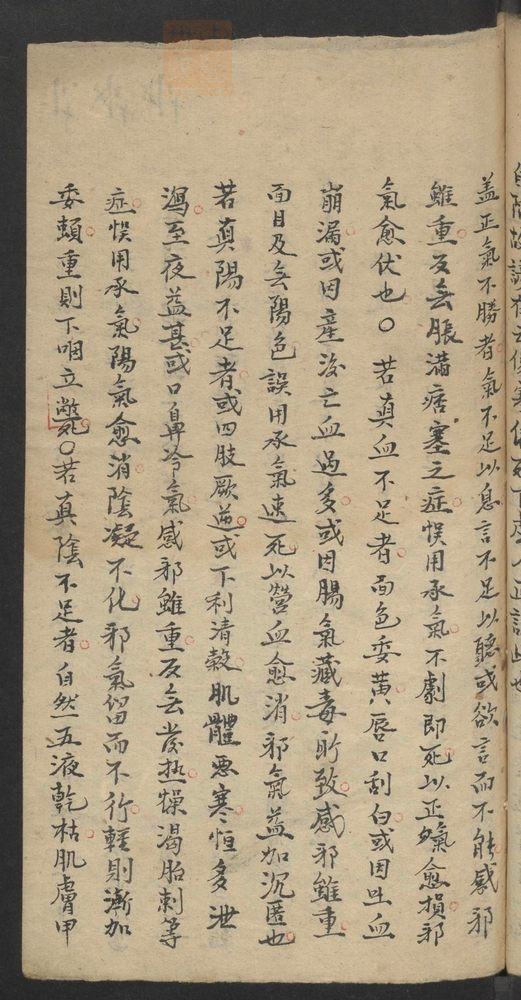 盖正氣不勝者氣不足以息言不足以聽或欲言而不能感邪
雖重反無脹滿痞塞之症悞用承氣不劇即死以正氣愈損邪
氣愈伏也〇若真血不足者面色委黃唇口刮白或因吐血
崩漏或因產後亡血過多或因腸氣藏毒所致感邪雖重
面目反無陽色誤用承氣速死以營血愈消邪氣益加沉匿也
若真陽不足者或四肢厥逆或下利清穀肌體惡寒恒多泄
瀉至夜益甚或口鼻冷氣感邪雖重反無發热燥渴胎刺等
症悞用承氣陽氣愈消陰凝不化邪氣留而不行輕則漸加
委頓重則下咽立斃〇若真陰不足者自然五液乾枯肌膚甲